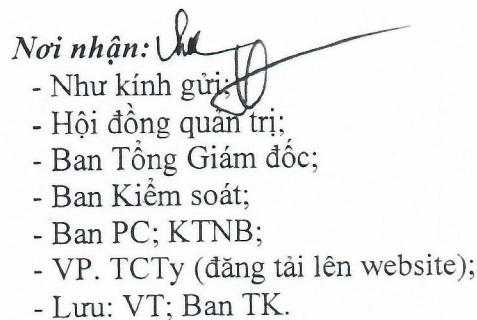 Nơi nhận:
- Như kính gửi;
- Hội đồng quản trị;
- Ban Tổng Giám đốc;
- Ban Kiểm soát;
- Ban PC; KTNB;
- VP. TCTy (đăng tải lên website);
- Lưu: VT; Ban TK.